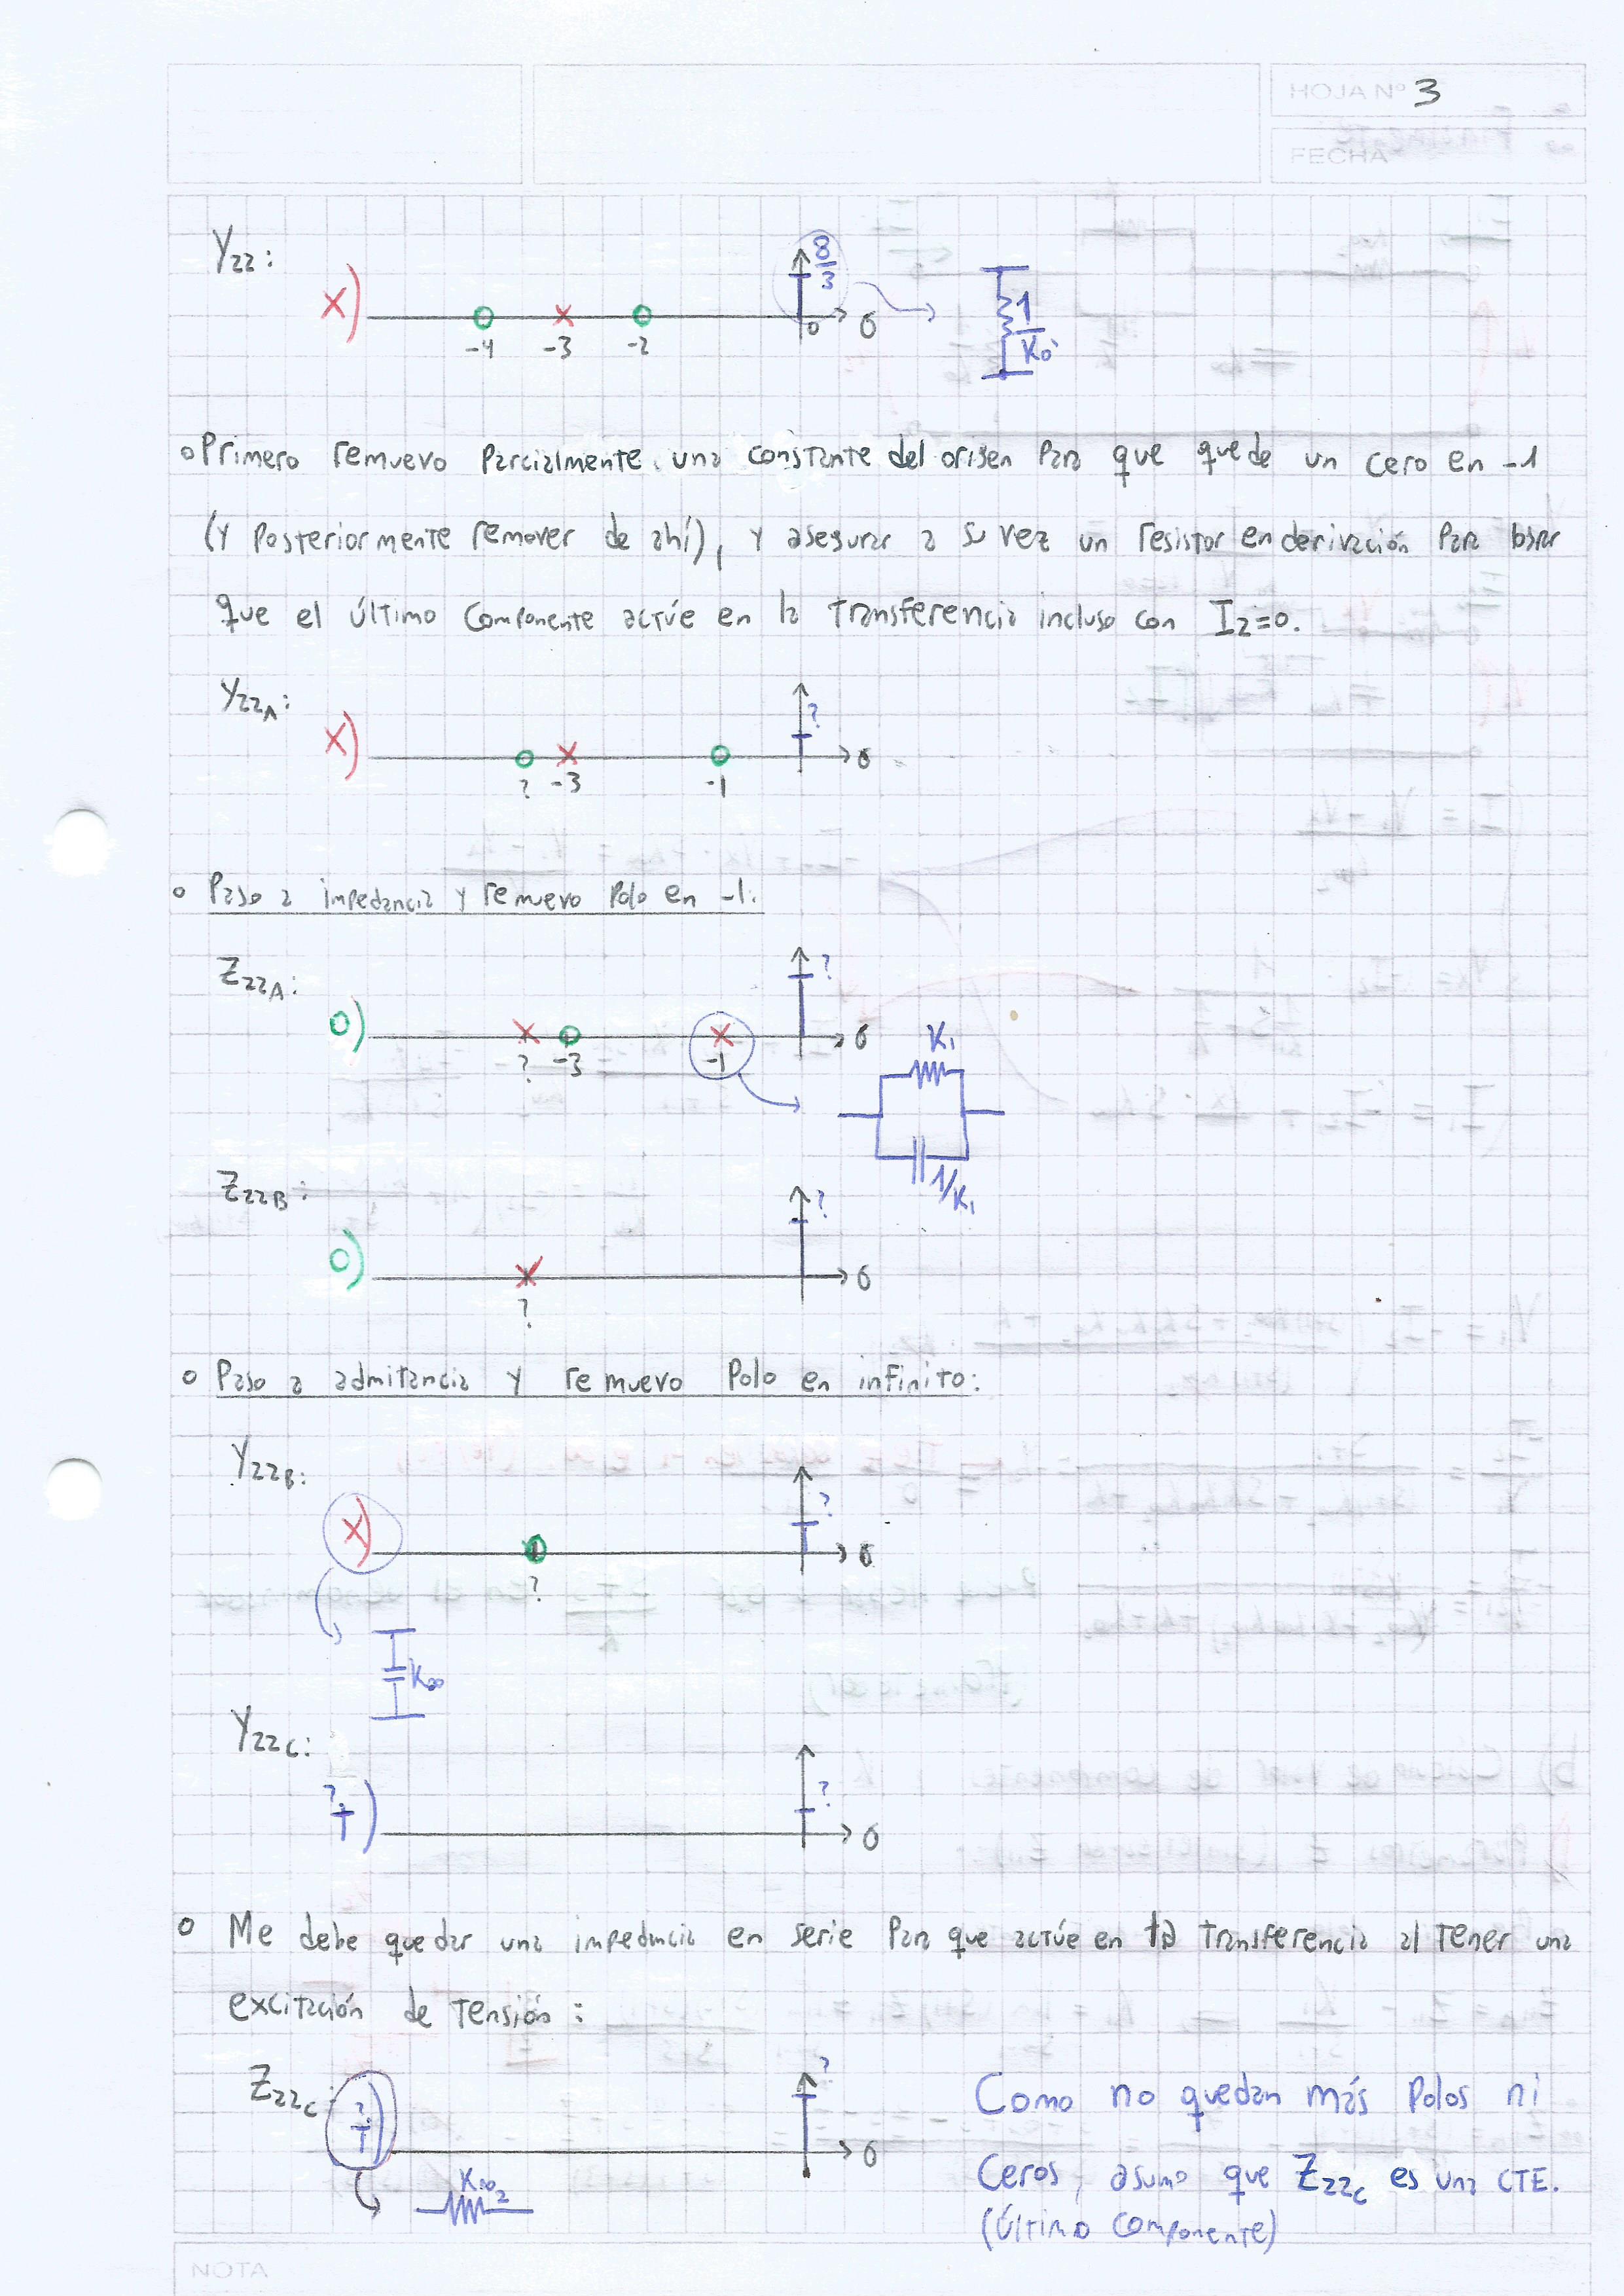 HOJA Nº 3
FECHA
Y22:
X)
8/3
-4 -3 -2 0 σ
1/K0'
o Primero remuevo parcialmente una constante del origen para que quede un cero en -1
(y posteriormente remover de ahí), y asegurar a su vez un resistor en derivación para lograr
que el último componente actúe en la transferencia incluso con I2=0.
Y22A:
X)
?
? -3 -1 σ
o Paso a impedancia y remuevo polo en -1.
Z22A:
O)
?
? -3 -1 σ
K1
1/K1
Z22B:
O)
?
? σ
o Paso a admitancia y remuevo polo en infinito:
Y22B:
X)
?
? σ
K∞
Y22C:
?)
?
σ
o Me debe quedar una impedancia en serie para que actúe en la transferencia al tener una
excitación de tensión:
Z22C:
?)
?
σ
K∞2
Como no quedan más polos ni
ceros, asumo que Z22C es una CTE.
(último componente)
NOTA